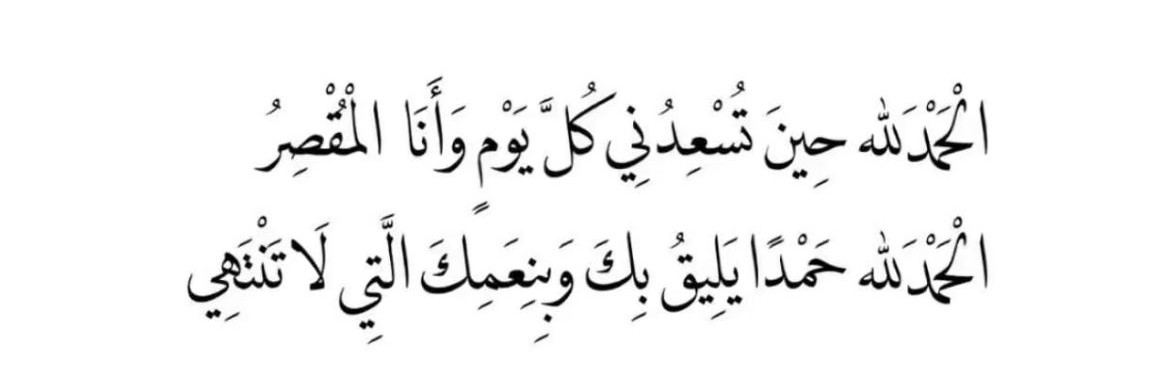 الْحَمْدَلله حِينَ تُسْعِدُنِي كُلَّ يَوْمٍ وَأَنَا الْمُقْصِرُ
الْحَمْدَلله حَمْدًا يَلِيقُ بِكَ وَبِنِعَمِكَ الَّتِي لَا تَنْتَهِي